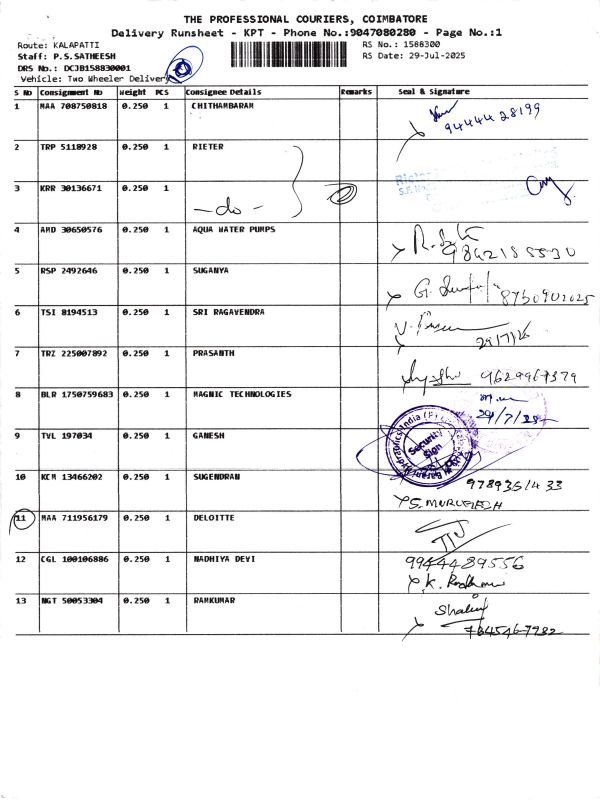 THE PROFESSIONAL COURIERS, COIMBATORE
Delivery Runsheet - KPT - Phone No.:9047080280 - Page No.:1
Route: KALAPATTI
RS No.: 1588300
Staff: P.S.SATHEESH
RS Date: 29-Jul-2025
DRS No.: DCJB158830001
Vehicle: Two Wheeler Delivery
S No Consignment No Weight PCS Consignee Details Remarks Seal & Signature
1 MAA 708750818 0.250 1 CHITHAMBARAM
9444428199
2 TRP 5118928 0.250 1 RIETER
3 KRR 30136671 0.250 1 -do-
4 AMD 30650576 0.250 1 AQUA WATER PUMPS
9842185530
5 RSP 2492646 0.250 1 SUGANYA
G.
8750902025
6 TSI 8194513 0.250 1 SRI RAGAVENDRA
29/7/25
7 TRZ 225007892 0.250 1 PRASANTH
9629967379
8 BLR 1750759683 0.250 1 MAGNIC TECHNOLOGIES
29/7/25
9 TVL 197034 0.250 1 GANESH
Security
Sign
10 KCM 13466202 0.250 1 SUGENDRAN
S. MURUGESH
11 MAA 711956179 0.250 1 DELOITTE
12 CGL 100106886 0.250 1 NADHIYA DEVI
9944489556
K.
13 NGT 50053304 0.250 1 RAMKUMAR